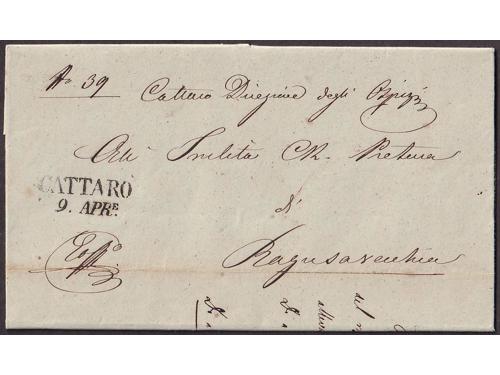 No 39
Cattaro Direzione degli Ospizj
All Inclita CR. Pretura
di
Ragusavecchia
CATTARO
9. APRE.
del